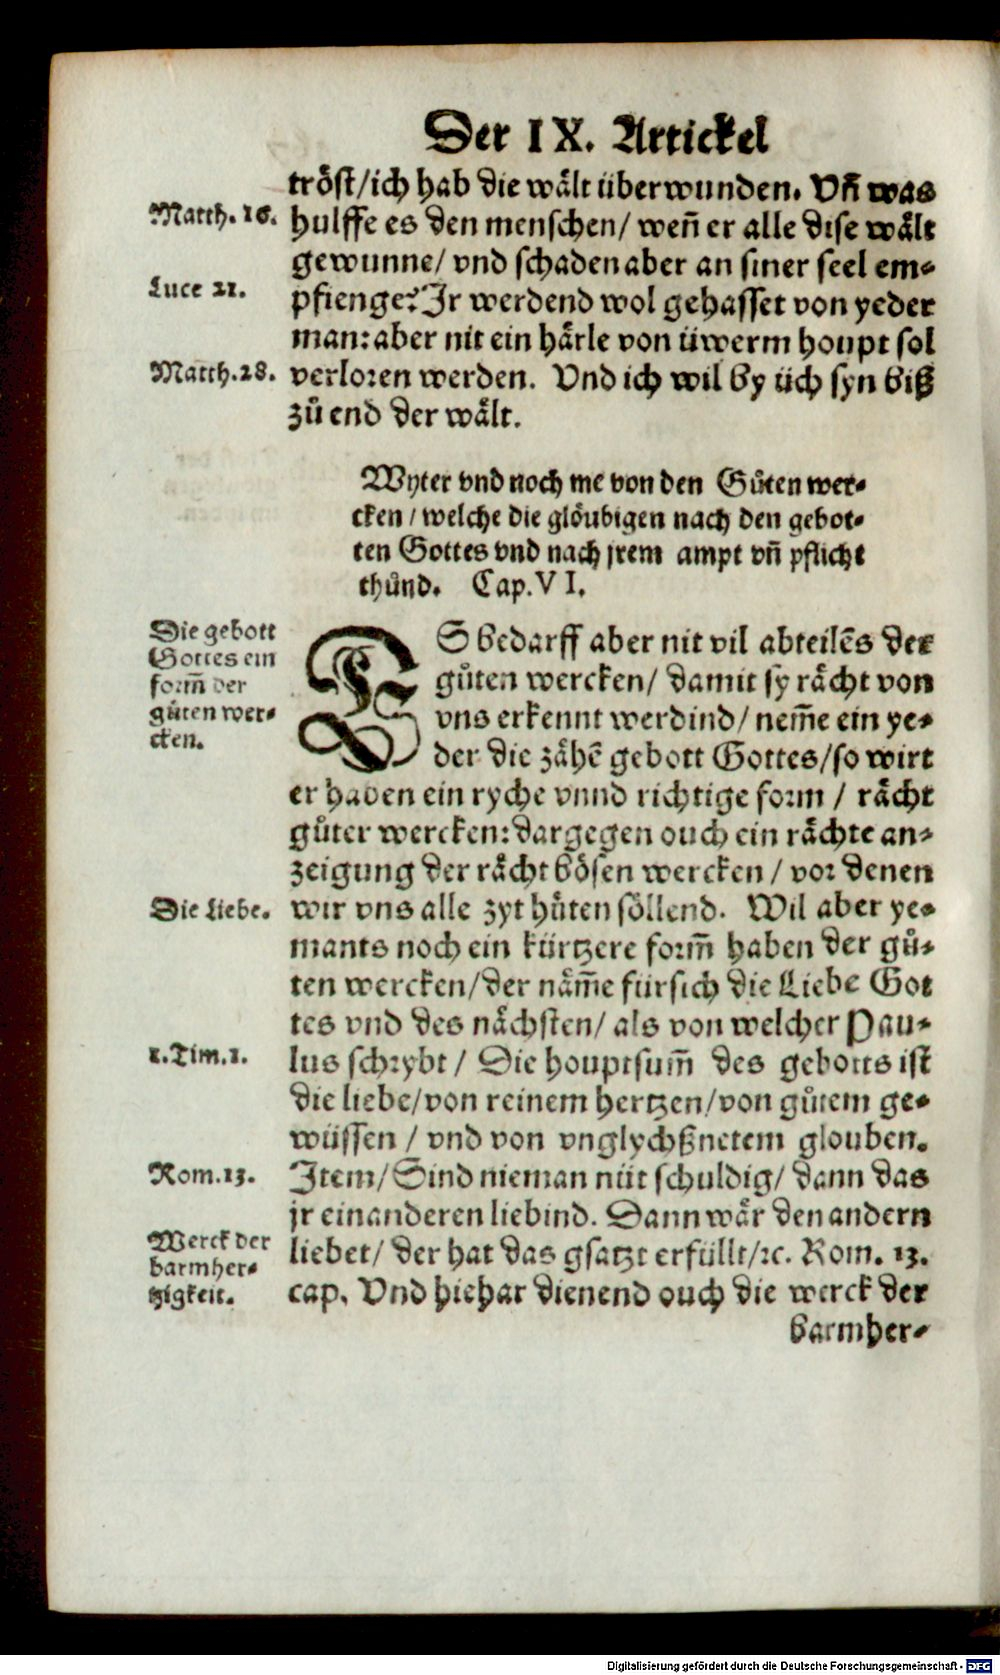 Der IX. Artickel
tröst/ich hab die wält überwunden. Vñ was
Matth. 16.
hulffe es den menschen/ weñ er alle dise wält
gewunne/ vnd schaden aber an siner seel em-
Luce 21.
pfienge? Jr werdend wol gehasset von yeder
man: aber nit ein härle von üwerm houpt sol
Matth. 28.
verloren werden. Vnd ich wil by üch syn biß
zů end der wält.
Wyter vnd noch me von den Gůten wer-
cken/ welche die glöubigen nach den gebot-
ten Gottes vnd nach jrem ampt vñ pflicht
thůnd. Cap. VI.
Die gebott
Gottes ein
form̃ der
gůten wer-
cken.
ES bedarff aber nit vil abteilẽs der
gůten wercken/ damit sy rächt von
vns erkennt werdind/ nem̃e ein ye-
der die zähẽ gebott Gottes/ so wirt
er haben ein ryche vnnd richtige form / rächt
gůter wercken: dargegen ouch ein rächte an-
zeigung der rächt bösen wercken / vor denen
Die Liebe.
wir vns alle zyt hüten söllend. Wil aber ye-
mants noch ein kürtzere form̃ haben der gů-
ten wercken/ der näm̃e für sich die Liebe Got
tes vnd des nächsten/ als von welcher Pau-
1. Tim. 1.
lus schrybt / Die houptsum̃ des gebotts ist
die liebe/ von reinem hertzen/ von gůtem ge-
wüssen / vnd von vnglychßnetem glouben.
Rom. 13.
Jtem/ Sind nieman nüt schuldig/ dann das
jr einanderen liebind. Dann wär den andern
Werck der
barmher-
tzigkeit.
liebet/ der hat das gsatzt erfüllt/ ꝛc. Rom. 13.
cap. Vnd hiehar dienend ouch die werck der
barmher-
Digitalisierung gefördert durch die Deutsche Forschungsgemeinschaft - DFG